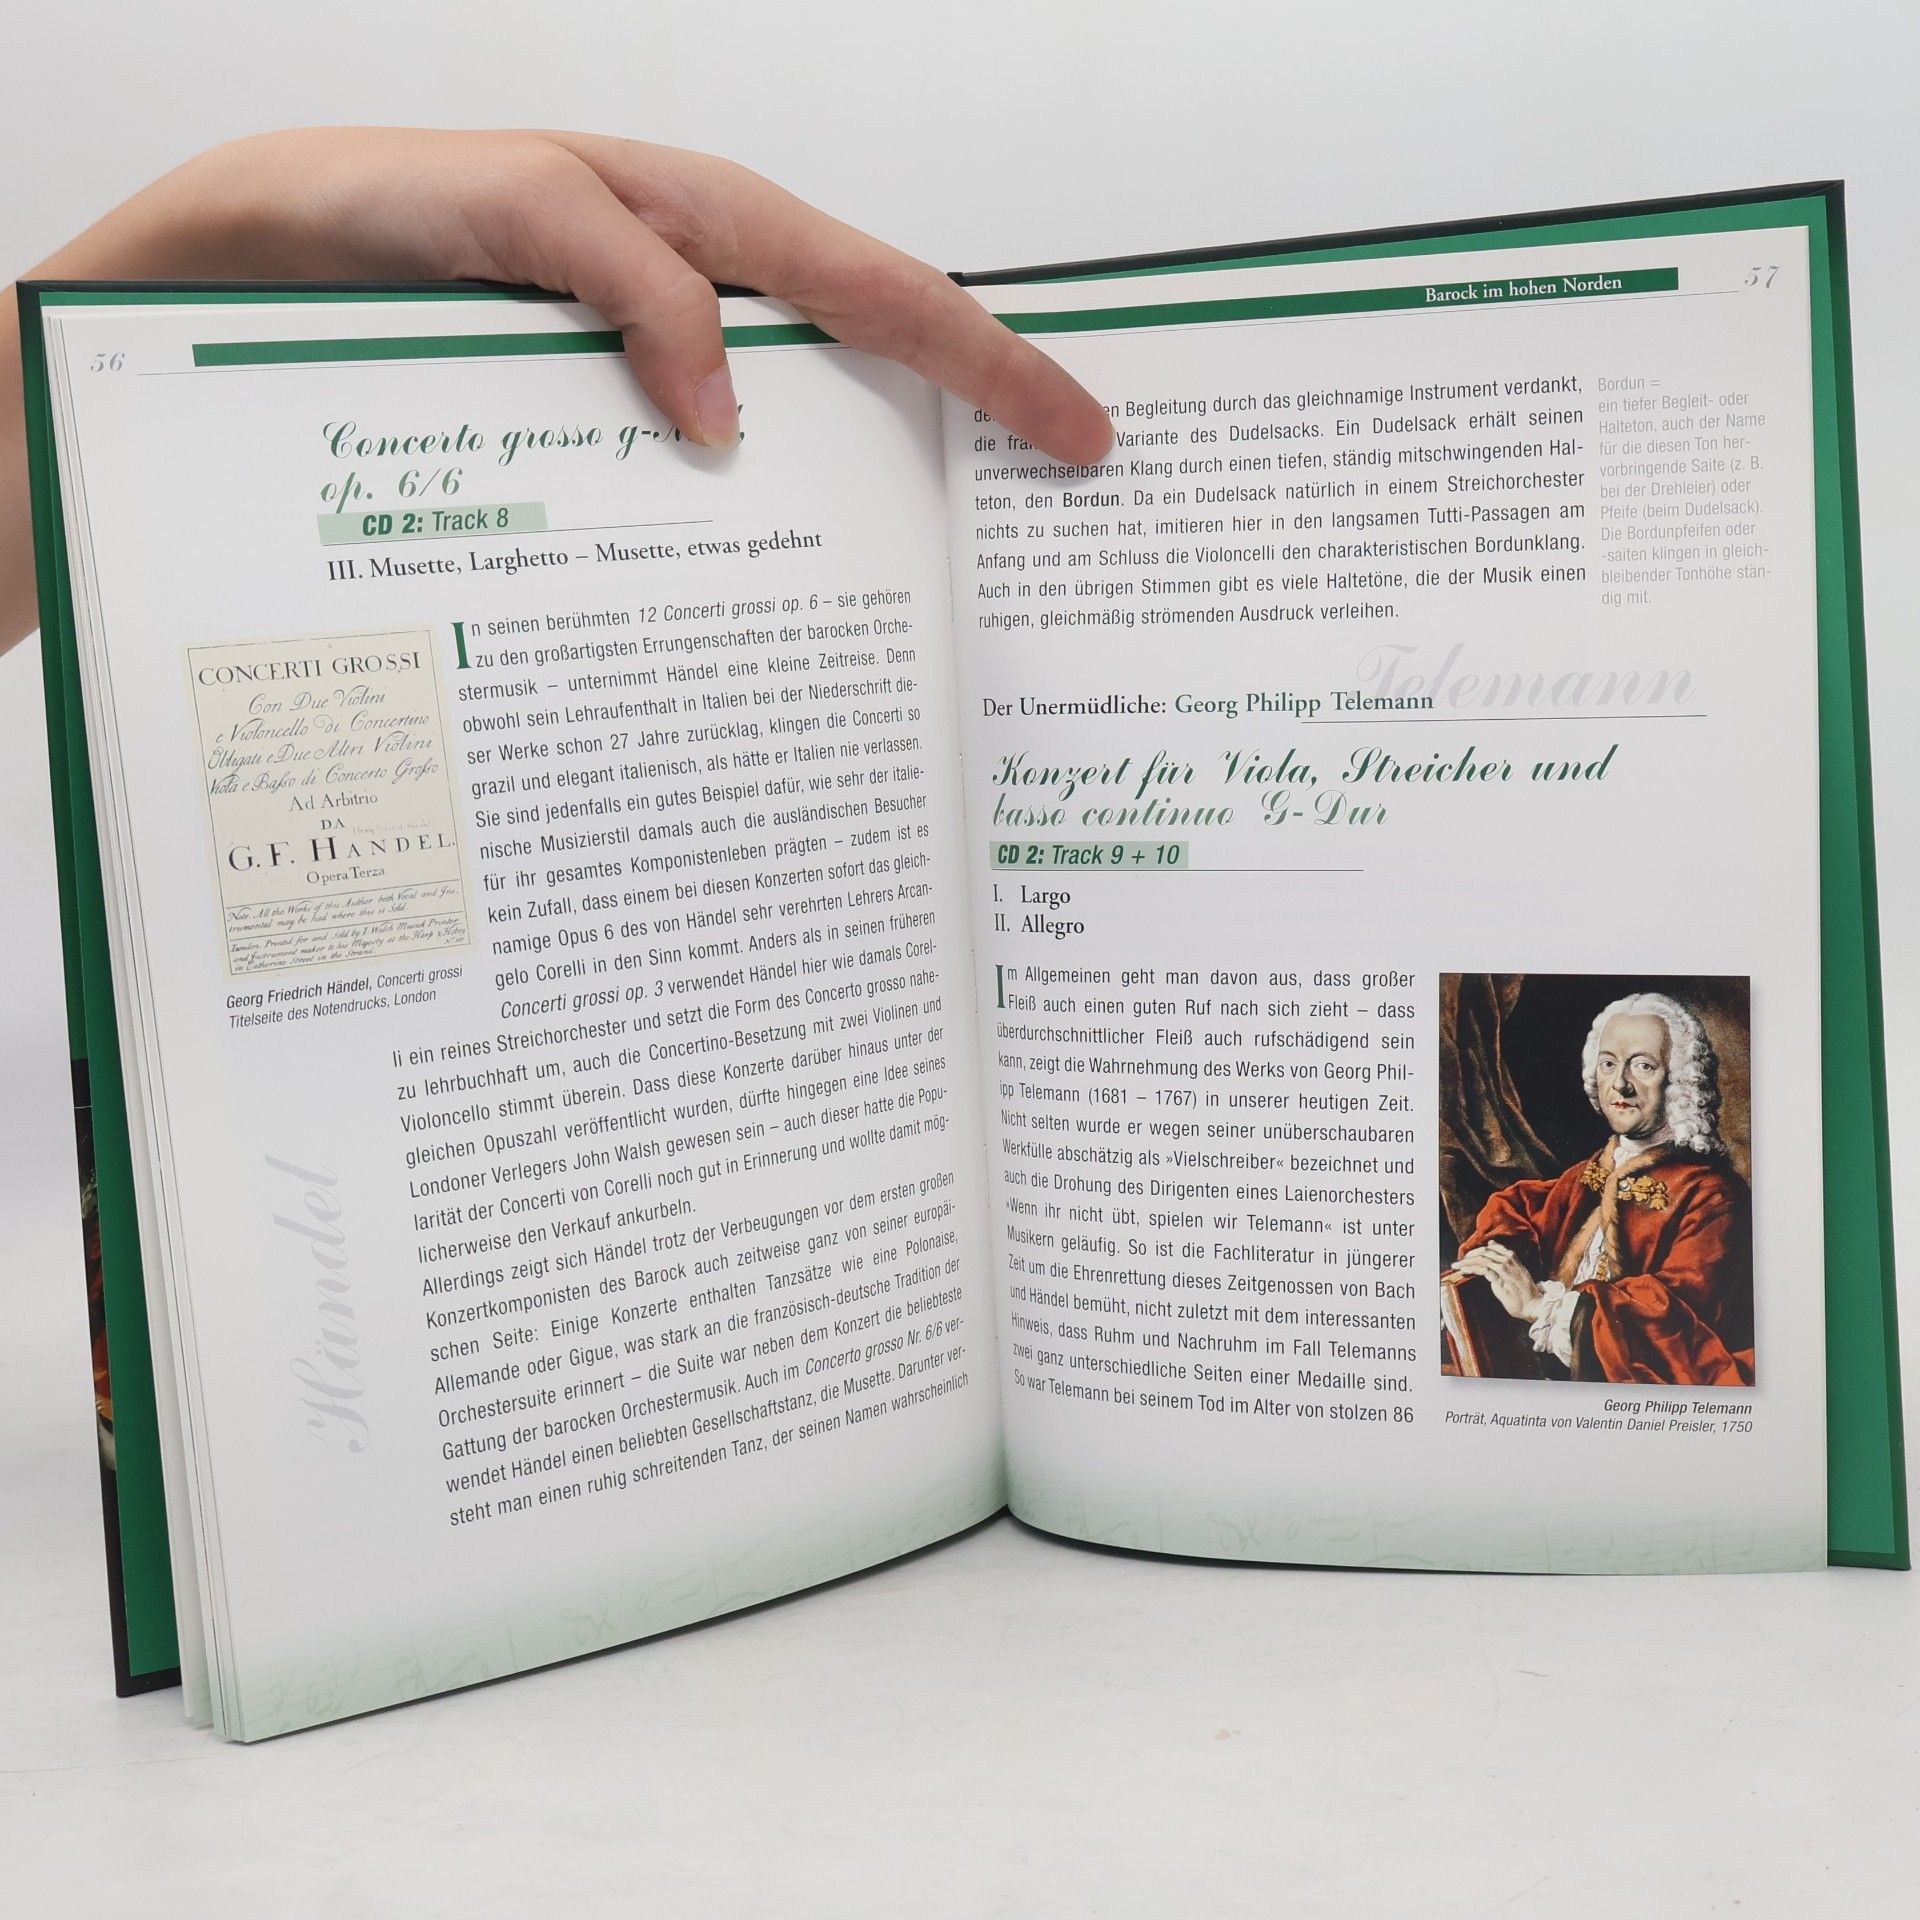 56
Concerto grosso
op. 6/6
CD 2: Track 8
III. Musette, Larghetto – Musette, etwas gedehnt
In seinen berühmten 12 Concerti grossi op. 6 – sie gehören
zu den großartigsten Errungenschaften der barocken Orche-
stermusik – unternimmt Händel eine kleine Zeitreise. Denn
obwohl sein Lehraufenthalt in Italien bei der Niederschrift die-
ser Werke schon 27 Jahre zurücklag, klingen die Concerti so
grazil und elegant italienisch, als hätte er Italien nie verlassen.
Sie sind jedenfalls ein gutes Beispiel dafür, wie sehr der italie-
nische Musizierstil damals auch die ausländischen Besucher
für ihr gesamtes Komponistenleben prägten – zudem ist es
kein Zufall, dass einem bei diesen Konzerten sofort das gleich-
namige Opus 6 des von Händel sehr verehrten Lehrers Arcan-
gelo Corelli in den Sinn kommt. Anders als in seinen früheren
Concerti grossi op. 3 verwendet Händel hier wie damals Corel-
li ein reines Streichorchester und setzt die Form des Concerto grosso nahe-
zu lehrbuchhaft um, auch die Concertino-Besetzung mit zwei Violinen und
Violoncello stimmt überein. Dass diese Konzerte darüber hinaus unter der
gleichen Opuszahl veröffentlicht wurden, dürfte hingegen eine Idee seines
Londoner Verlegers John Walsh gewesen sein – auch dieser hatte die Popu-
larität der Concerti von Corelli noch gut in Erinnerung und wollte damit mög-
licherweise den Verkauf ankurbeln.
Allerdings zeigt sich Händel trotz der Verbeugungen vor dem ersten großen
Konzertkomponisten des Barock auch zeitweise ganz von seiner europäi-
schen Seite: Einige Konzerte enthalten Tanzsätze wie eine Polonaise,
Allemande oder Gigue, was stark an die französisch-deutsche Tradition der
Orchestersuite erinnert – die Suite war neben dem Konzert die beliebteste
Gattung der barocken Orchestermusik. Auch im Concerto grosso Nr. 6/6 ver-
wendet Händel einen beliebten Gesellschaftstanz, die Musette. Darunter ver-
steht man einen ruhig schreitenden Tanz, der seinen Namen wahrscheinlich
CONCERTI GROSSI
Con Due Violini
e Violoncello di Concertino
Obligati e Due Altri Violini
Viola e Basso di Concerto Grosso
Ad Arbitrio
DA
G. F. HANDEL.
Opera Terza.
Note. All the Works of this Author both Vocal and Ins-
trumental may be had where this is Sold.
London. Printed for and Sold by I. Walsh Musick Printer
and Instrument maker to his Majesty at the Harp & Hoboy
in Catherine Street in the Strand.
Georg Friedrich Händel, Concerti grossi
Titelseite des Notendrucks, London
Händel
Barock im hohen Norden
57
Begleitung durch das gleichnamige Instrument verdankt,
die Variante des Dudelsacks. Ein Dudelsack erhält seinen
unverwechselbaren Klang durch einen tiefen, ständig mitschwingenden Hal-
teton, den Bordun. Da ein Dudelsack natürlich in einem Streichorchester
nichts zu suchen hat, imitieren hier in den langsamen Tutti-Passagen am
Anfang und am Schluss die Violoncelli den charakteristischen Bordunklang.
Auch in den übrigen Stimmen gibt es viele Haltetöne, die der Musik einen
ruhigen, gleichmäßig strömenden Ausdruck verleihen.
Bordun =
ein tiefer Begleit- oder
Halteton, auch der Name
für die diesen Ton her-
vorbringende Saite (z. B.
bei der Drehleier) oder
Pfeife (beim Dudelsack).
Die Bordunpfeifen oder
-saiten klingen in gleich-
bleibender Tonhöhe stän-
dig mit.
Telemann
Der Unermüdliche: Georg Philipp Telemann
Konzert für Viola, Streicher und
basso continuo G-Dur
CD 2: Track 9 + 10
I. Largo
II. Allegro
Im Allgemeinen geht man davon aus, dass großer
Fleiß auch einen guten Ruf nach sich zieht – dass
überdurchschnittlicher Fleiß auch rufschädigend sein
kann, zeigt die Wahrnehmung des Werks von Georg Phil-
ipp Telemann (1681 – 1767) in unserer heutigen Zeit.
Nicht selten wurde er wegen seiner unüberschaubaren
Werkfülle abschätzig als »Vielschreiber« bezeichnet und
auch die Drohung des Dirigenten eines Laienorchesters
»Wenn ihr nicht übt, spielen wir Telemann« ist unter
Musikern geläufig. So ist die Fachliteratur in jüngerer
Zeit um die Ehrenrettung dieses Zeitgenossen von Bach
und Händel bemüht, nicht zuletzt mit dem interessanten
Hinweis, dass Ruhm und Nachruhm im Fall Telemanns
zwei ganz unterschiedliche Seiten einer Medaille sind.
So war Telemann bei seinem Tod im Alter von stolzen 86
Georg Philipp Telemann
Porträt, Aquatinta von Valentin Daniel Preisler, 1750